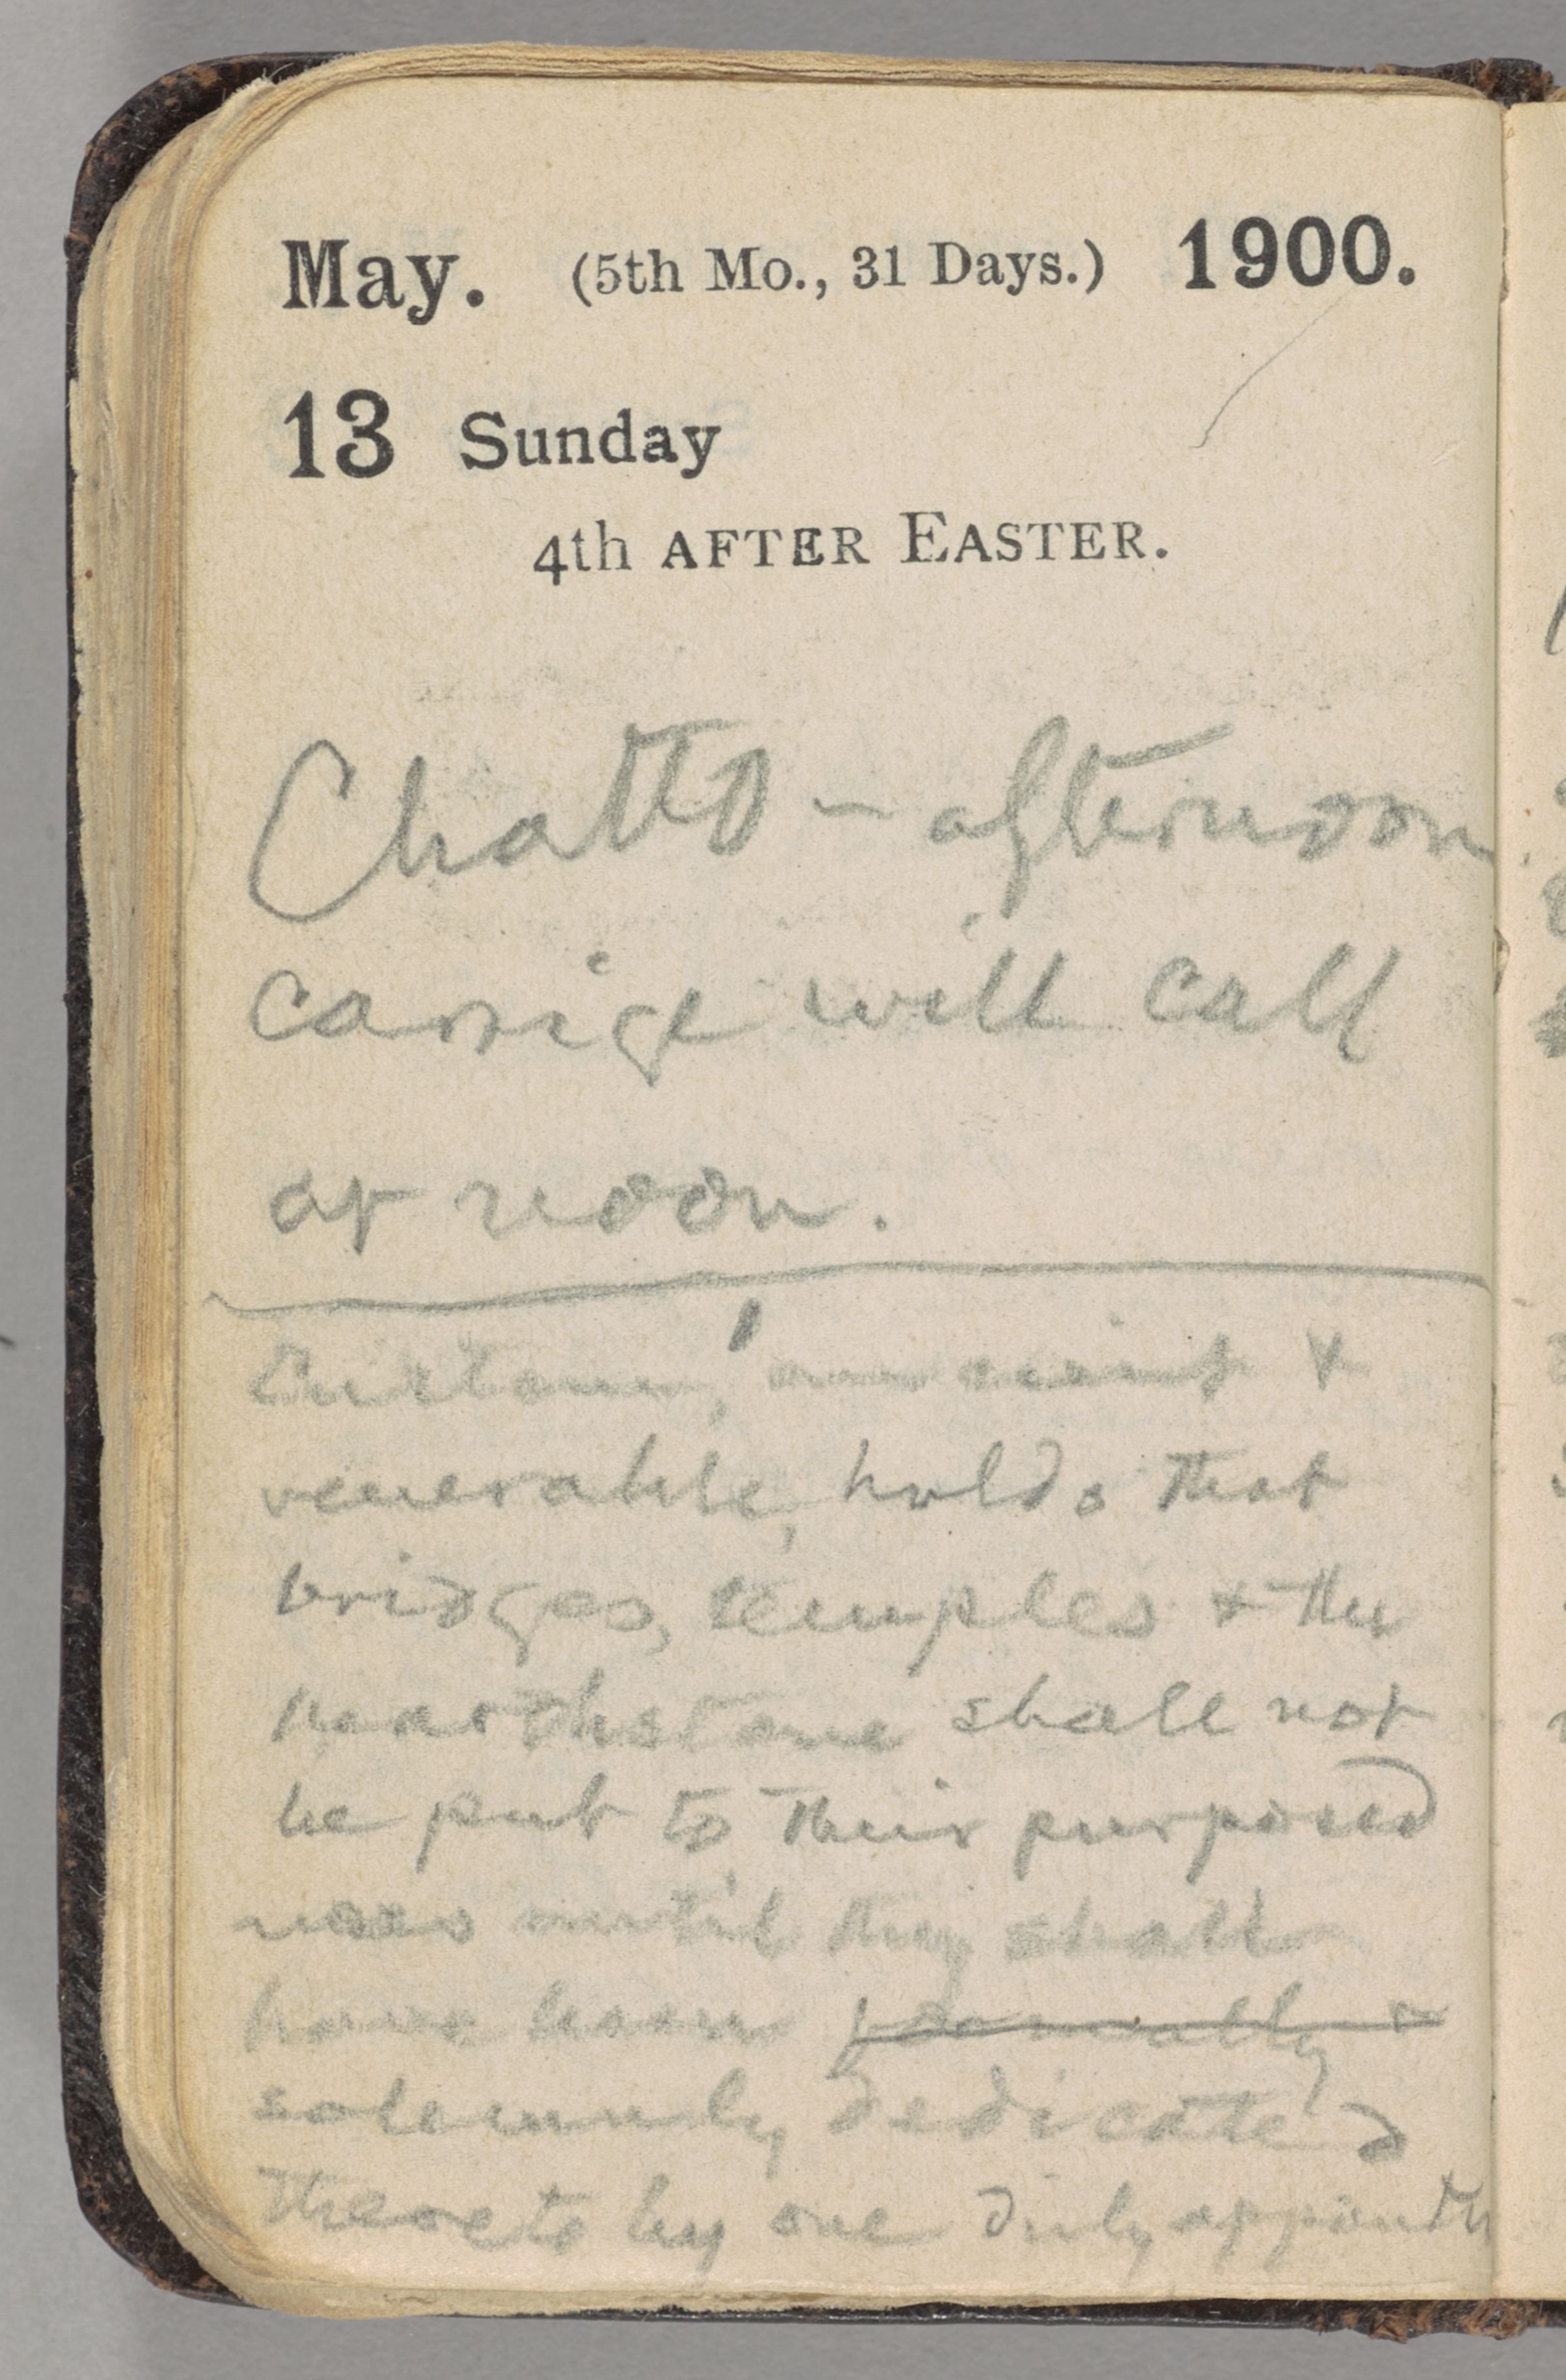 May. (5th Mo., 31 Days.) 1900.
13 Sunday
4th AFTER EASTER.
Chatto - afternoon
carrige will call
at noon.
Custom, ancient &
venerable, holds that
bridges, temples & the
hearthstone shall not
be put to their purposed
uses until they shall
have been formally &
solemnly dedicated
thereto by one duly